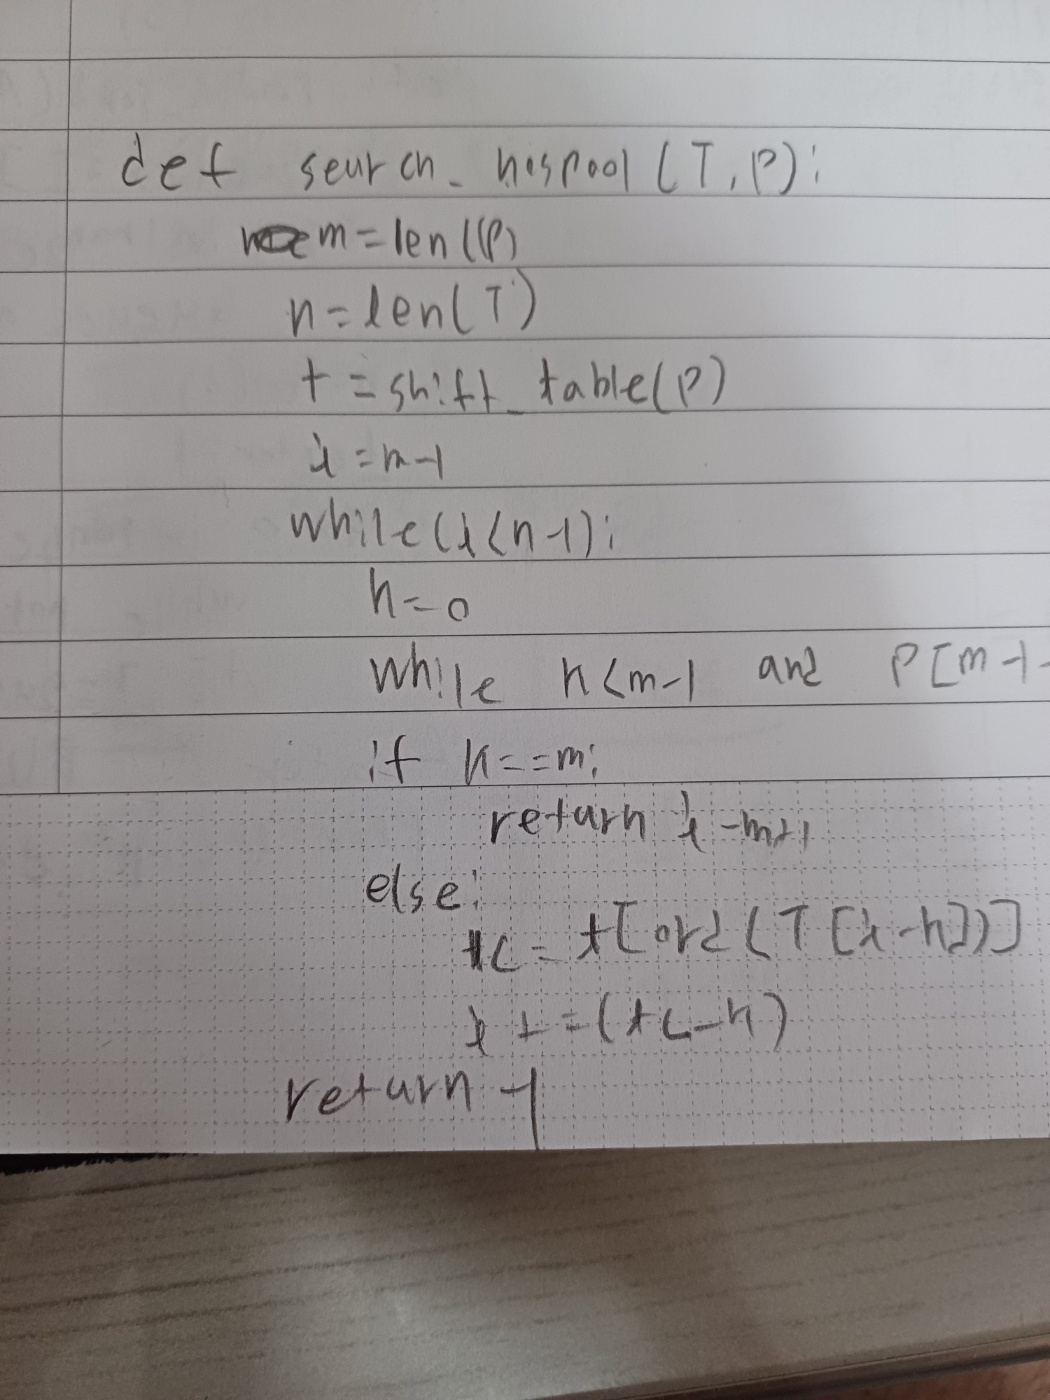 def search_hospool(T,P):
m=len(P)
n=len(T)
t=shift_table(P)
i=m-1
while(i<n-1):
k=0
while k<m-1 and P[m-1-
if k==m:
return i-m+1
else:
tc=t[ord(T[i-k])]
i+=(tc-k)
return -1